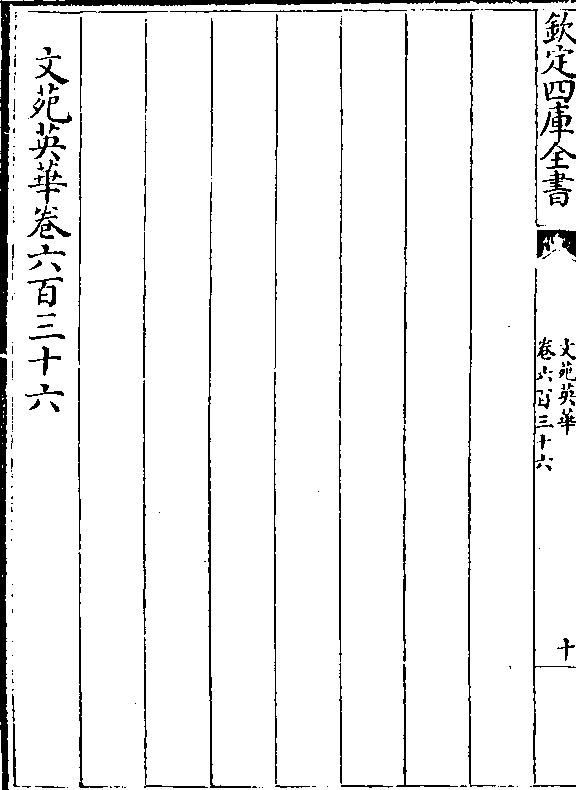 欽定四庫全書
文苑英華
卷六百三十六
十
文苑英華卷六百三十六